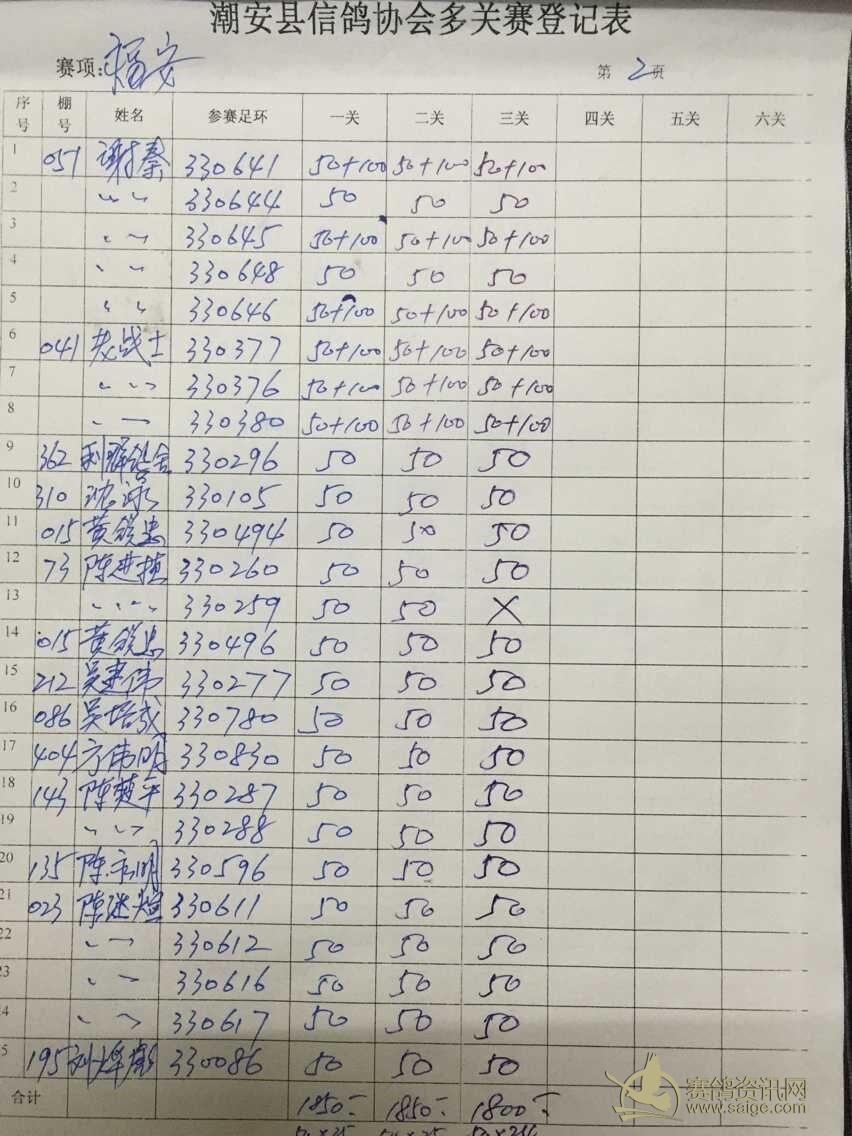 潮安县信鸽协会多关赛登记表
赛项: 福安 第 2 页
序号 棚号 姓名 参赛足环 一关 二关 三关 四关 五关 六关
1 051 谢秦 330641 50+100 50+100 50+100
2 〃 〃 330644 50 50 50
3 〃 〃 330645 50+100 50+100 50+100
4 〃 〃 330648 50 50 50
5 〃 〃 330646 50+100 50+100 50+100
6 041 老战士 330377 50+100 50+100 50+100
7 〃 〃 330376 50+100 50+100 50+100
8 〃 〃 330380 50+100 50+100 50+100
9 362 利群鸽舍 330296 50 50 50
10 310 沈 330105 50 50 50
11 015 黄锐忠 330494 50 50 50
12 73 陈进 330260 50 50 50
13 〃 〃 330259 50 50 X
14 015 黄锐忠 330496 50 50 50
15 212 吴建伟 330277 50 50 50
16 086 吴培成 330780 50 50 50
17 404 方伟明 330830 50 50 50
18 143 陈楚平 330287 50 50 50
19 〃 〃 330288 50 50 50
20 135 陈 明 330596 50 50 50
21 023 陈 330611 50 50 50
22 〃 330612 50 50 50
23 〃 330616 50 50 50
4 〃 330617 50 50 50
5 195 330086 50 50 50
合计 1850- 1850- 1800-
50×25 50×25 50×24
赛鸽资讯网
www.saige.com